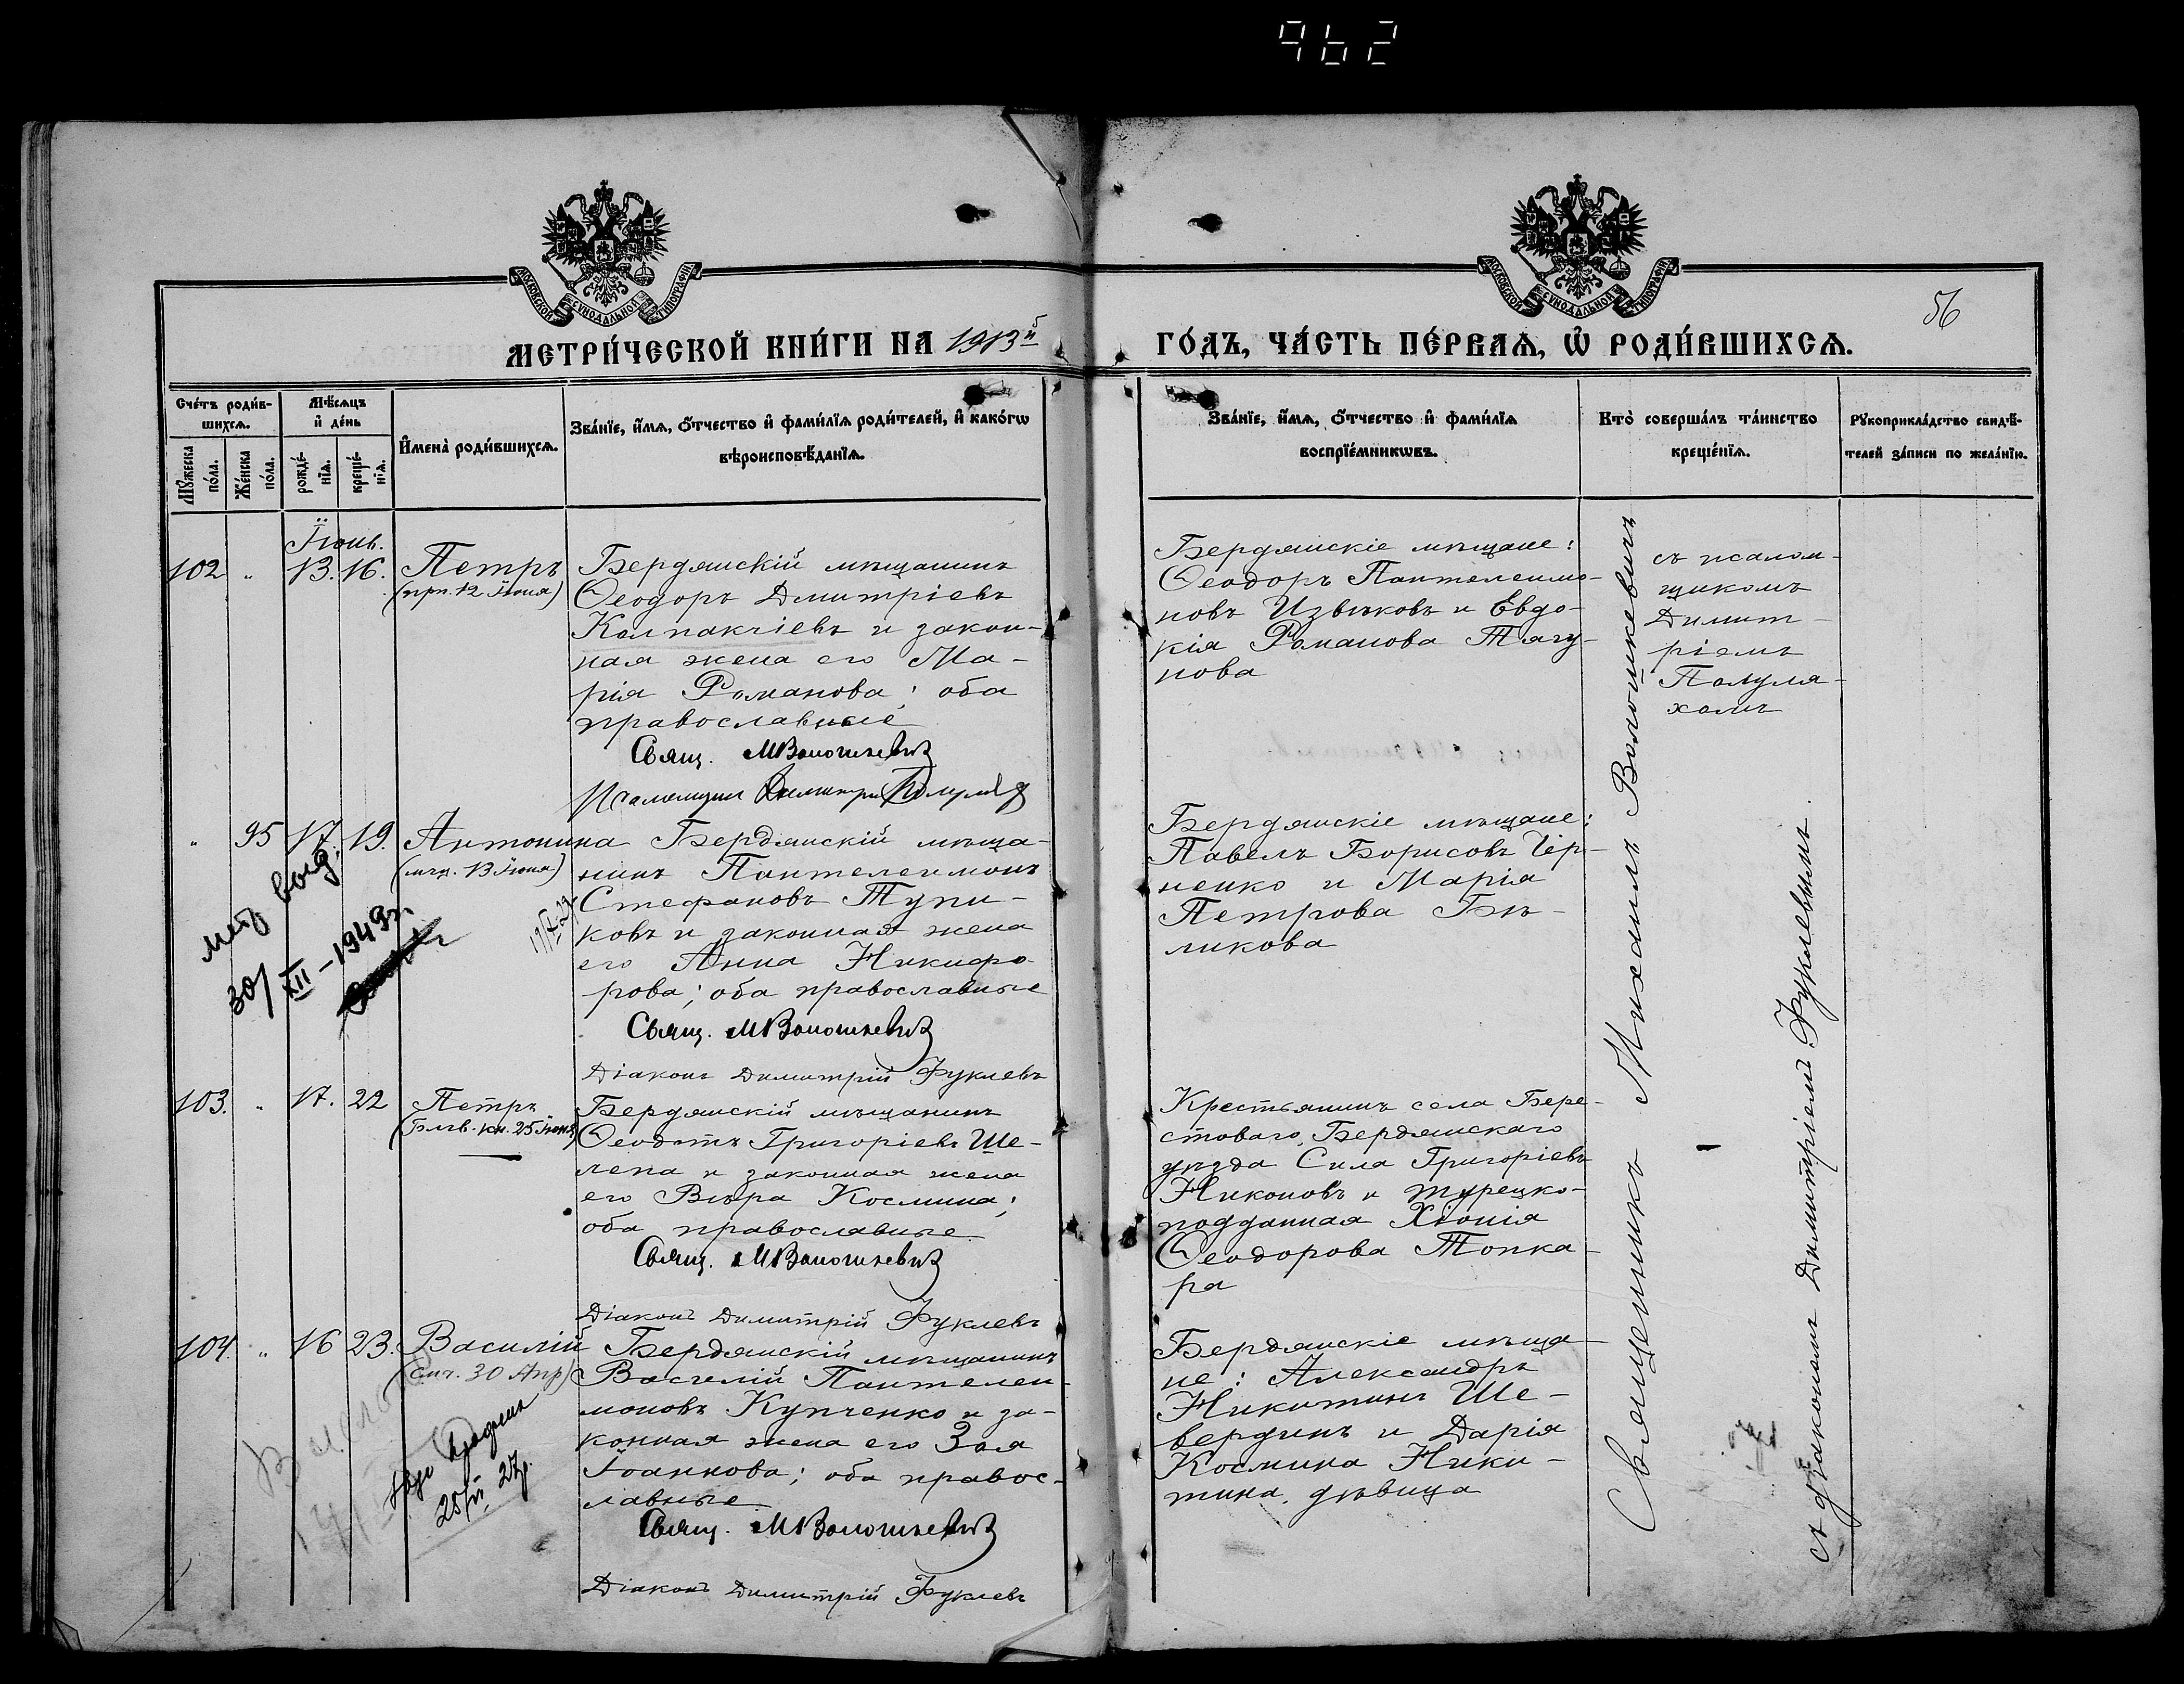 962
МОСКОВСКОЙ СУНОДАЛЬНОЙ ТИПОГРАФІИ
МОСКОВСКОЙ СУНОДАЛЬНОЙ ТИПОГРАФІИ
56
МЕТРИ́ЧЕСКОЙ КНИ́ГИ НА 1913й
ГО́ДЪ, ЧА́СТЬ ПЕ́РВАѦ, Ѡ҆ РОДИ́ВШИХСѦ.
Сче́тъ роди́в-
шихсѧ.
Мѣ́сѧцъ
и҆ де́нь
Мꙋ́жеска
по́ла.
Же́нска
по́ла.
рожде́-
нїѧ.
креще́-
нїѧ.
И҆мена̀ роди́вшихсѧ.
Зва́нїе, и҆́мѧ, ѻ҆́тчество и҆ фамилїѧ роди́телей, и҆ како́гѡ
вѣроисповѣ́данїѧ.
Зва́нїе, и҆́мѧ, ѻ҆́тчество и҆ фами́лїѧ
воспрїе́мникѡвъ.
Кто̀ соверша́лъ та́инство
креще́нїѧ.
Рꙋкоприкла́дство свидѣ́-
телей за́писи по жела́нїю.
Іюнь.
102 " 13. 16. Петръ
(прп. 12 Іюня)
Бердянскій мѣщанинъ
Ѳеодоръ Димитріевъ
Колпакчіевъ и закон-
ная жена его Ма-
рія Романова; оба
православные
Свящ. М Волошкевичъ
Псаломщикъ Димитрій Полулях
Бердянскіе мѣщане:
Ѳеодоръ Пантелеимо-
новъ Извѣковъ и Евдо-
кія Романова Тягу-
нова
съ псалом-
щикомъ
Димит-
ріемъ
Полуля-
хомъ
" 95 17. 19. Антонина
(мчц. 13 Іюня)
Бердянскій мѣща-
нинъ Пантелеимонъ
Стефановъ Тупи-
ковъ и законная жена
его Анна Никифо-
рова; оба православные
Свящ. М Волошкевичъ
Діаконъ Димитрій Фуклевъ
мет выд.
30/XII-1949г
Бердянскіе мѣщане:
Павелъ Борисовъ Чер-
ненко и Марія
Петрова Бѣ-
ликова
103. " 17. 22 Петръ
(Блгв. кн. 25 Іюня)
Бердянскій мѣщанинъ
Ѳеодотъ Григоріевъ Ше-
лепа и законная жена
его Вѣра Космина;
оба православные
Свящ. М Волошкевичъ
Діаконъ Димитрій Фуклевъ
Крестьянинъ села Бере-
стоваго, Бердянскаго
уѣзда Сила Григоріевъ
Никоновъ и турецко-
подданная Хіонія
Ѳеодорова Топка-
ра
104. " 16 23. Василій
(смч. 30 Апр)
Бердянскій мѣщанинъ
Василій Пантелеи-
моновъ Купченко и за-
конная жена его Зоя
Іоаннова; оба правос-
лавные
Свящ. М Волошкевичъ
Діаконъ Димитрій Фуклевъ
Бердянскіе мѣща-
не: Александръ
Никитинъ Ше-
вердинъ и Дарія
Космина Ники-
тина, дѣвица
Священникъ Михаилъ Волошкевичъ
съ діакономъ Димитріемъ Фуклевымъ.